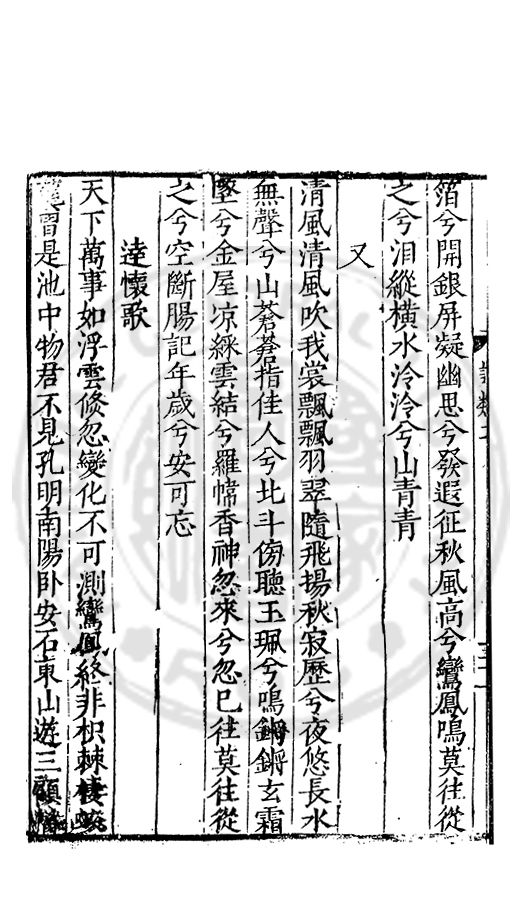 箔兮開銀屏凝幽思兮發遐征秋風高兮鸞鳳鳴莫往從
之兮泪縱橫水泠泠兮山青青
又
清風清風吹我裳飄飄羽翠隨飛揚秋寂歷兮夜悠長水
無聲兮山蒼蒼指佳人兮北斗傍聽玉珮兮鳴鏘鏘玄霜
墜兮金屋凉綵雲結兮羅幃香神忽來兮忽已往莫往從
之兮空斷腸記年歲兮安可忘
逹懷歌
天下萬事如浮雲倐忽變化不可測鸞鳳終非枳棘棲蛟
曽是池中物君不見孔明南陽卧安石東山遊三顧